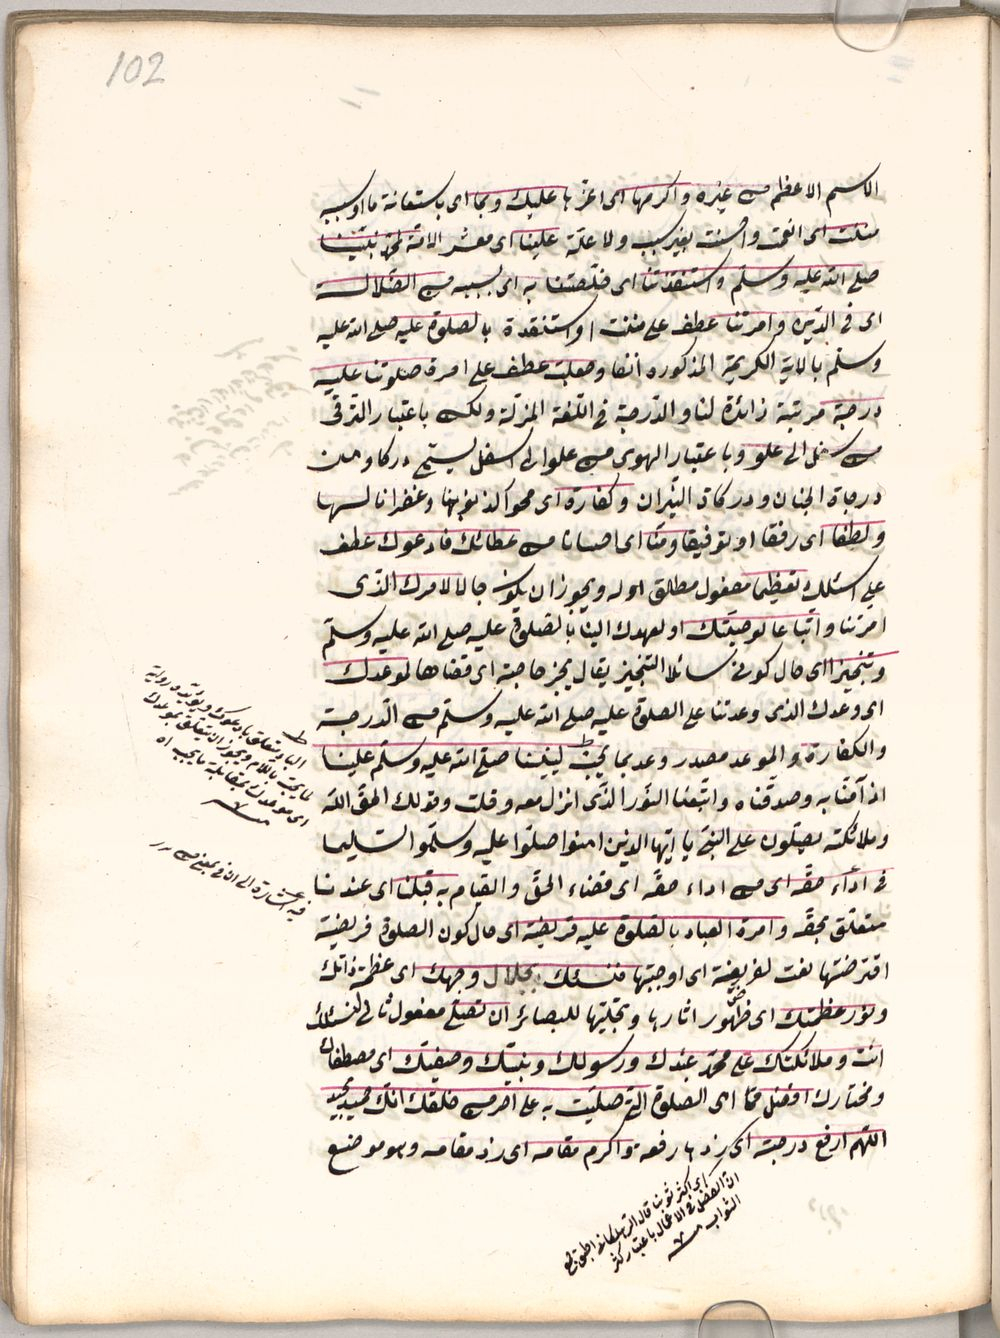 102
الاسم الاعظم من غيره واكرمها اى اعزها عليك وبما اى باستعانة ما او بسببه
مننت اى انعمت واحسنت بغير سبب ولا علة علينا اى معشر الامة بمحمد نبينا
صلى الله عليه وسلم واستنقذتنا اى خلصتنا به اى بسببه من الضلالة
اى فى الدين وامرتنا عطف على مننت او استنقذة بالصلوة عليه صلى الله عليه
وسلم بالاية الكريمة المذكورة انفا وجعلت عطف على امرة صلوتنا عليه
درجة مرتبة زائدة لنا والدرجة فى اللغة المنزلة ولكن باعتبار الترقى
من سفل الى علو وباعتبار الهوى من علو الى اسفل يسمى دركا ومن
درجاة الجنان ودركاة النيران وكفارة اى محوا لذنوبنا وغفرانا لها
ولطفا اى رفقا او توفيقا ومنا اى احسانا من عطائك فادعوك عطف
على اسئلك تعظيما مفعول مطلق اوله ويجوز ان يكون حالا لامرك الذى
امرتنا واتباعا لوصيتك او لعهدك الينا بالصلوة عليه صلى الله عليه وسلم
وتنجيزا اى حال كونى سائلا التنجيز يقال نجز حاجته اى قضاها لموعدك
اى وعدك الذى وعدتنا على الصلوة عليه صلى الله عليه وسلم من الدرجة
والكفارة والموعد مصدر وعد بما يجب لنبينا صلى الله عليه وسلم علينا
اذ آمنا به وصدقناه واتبعنا النور الذى انزل معه وقلت وقولك الحق الله
وملائكته يصلون على النبى يا ايها الذين امنوا صلوا عليه وسلموا تسليما
فى اداء حقه اى من اداء حقه اى قضاء الحق والقيام به قبلنا اى عندنا
متعلق بحقه وامرة العباد بالصلوة عليه فريضة اى حال كون الصلوة فريضة
افترضتها نعت لفريضة اى اوجبتها فنسئلك بجلال وجهك اى عظمة ذاتك
ونور عظمتك اى ظهور اثارها وتجليها للبصائر ان تصلى مفعول ثانى لنسئلك
انت وملائكتك على محمد عبدك ورسولك ونبيك وصفيك اى مصطفاك
ومختارك افضل مما اى الصلوة التى صليت به على احد من خلقك انك حميد مجيد
اللهم ارفع درجته اى زدها رفعة واكرم مقامه اى زد مقامه وهو موضع
الباء متعلق بادعوك ويؤيده رواية
لما يجب باللام ويجوز ان يتعلق بموعدك
اى موعدك بمقابلة ما يجب اه
فيه اشارة الى ان فى بمعنى من
اى اكثر ثوبا قال
ان الفضل فى الاعمال باعتبار كثر
الثواب